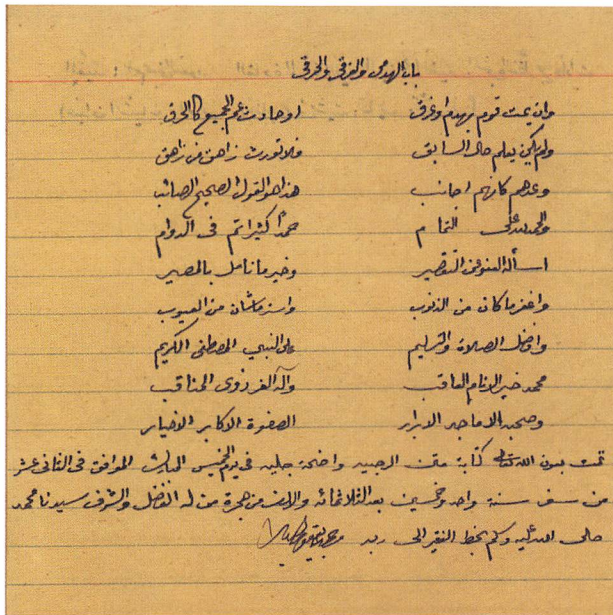 باب الهدمى والغرقى والحرقى
وان يمت قوم بهدم او غرق    او حادث عم الجميع كالحرق
ولم يكن يعلم حال السابق    فلا تورث زاهق من زاهق
وعدهم كانهم اجانب    فهذا هو القول الصحيح الصائب
والحمد لله على التمام    حمدا كثيرا تم في الدوام
اسأله العفو عن التقصير    وخير ما نامل بالمصير
واغفر ما كان من الذنوب    واستر ما شان من العيوب
وافضل الصلاة والتسليم    على النبي المصطفى الكريم
محمد خير الانام العاقب    وآله الغر ذوى المناقب
وصحبه الاماجد الابرار    الصفوة الاكابر الاخيار
تمت بعون الله تعالى كتابة متن الرحبيه واضحة جليه في يوم الخميس المبارك الموافق في الثانى عشر
من صفر سنة واحد وخمسين بعد الثلاثمائه والالف من هجرة من له الفضل والشرف سيدنا محمد
صلى الله عليه وسلم بخط الفقير الى ربه